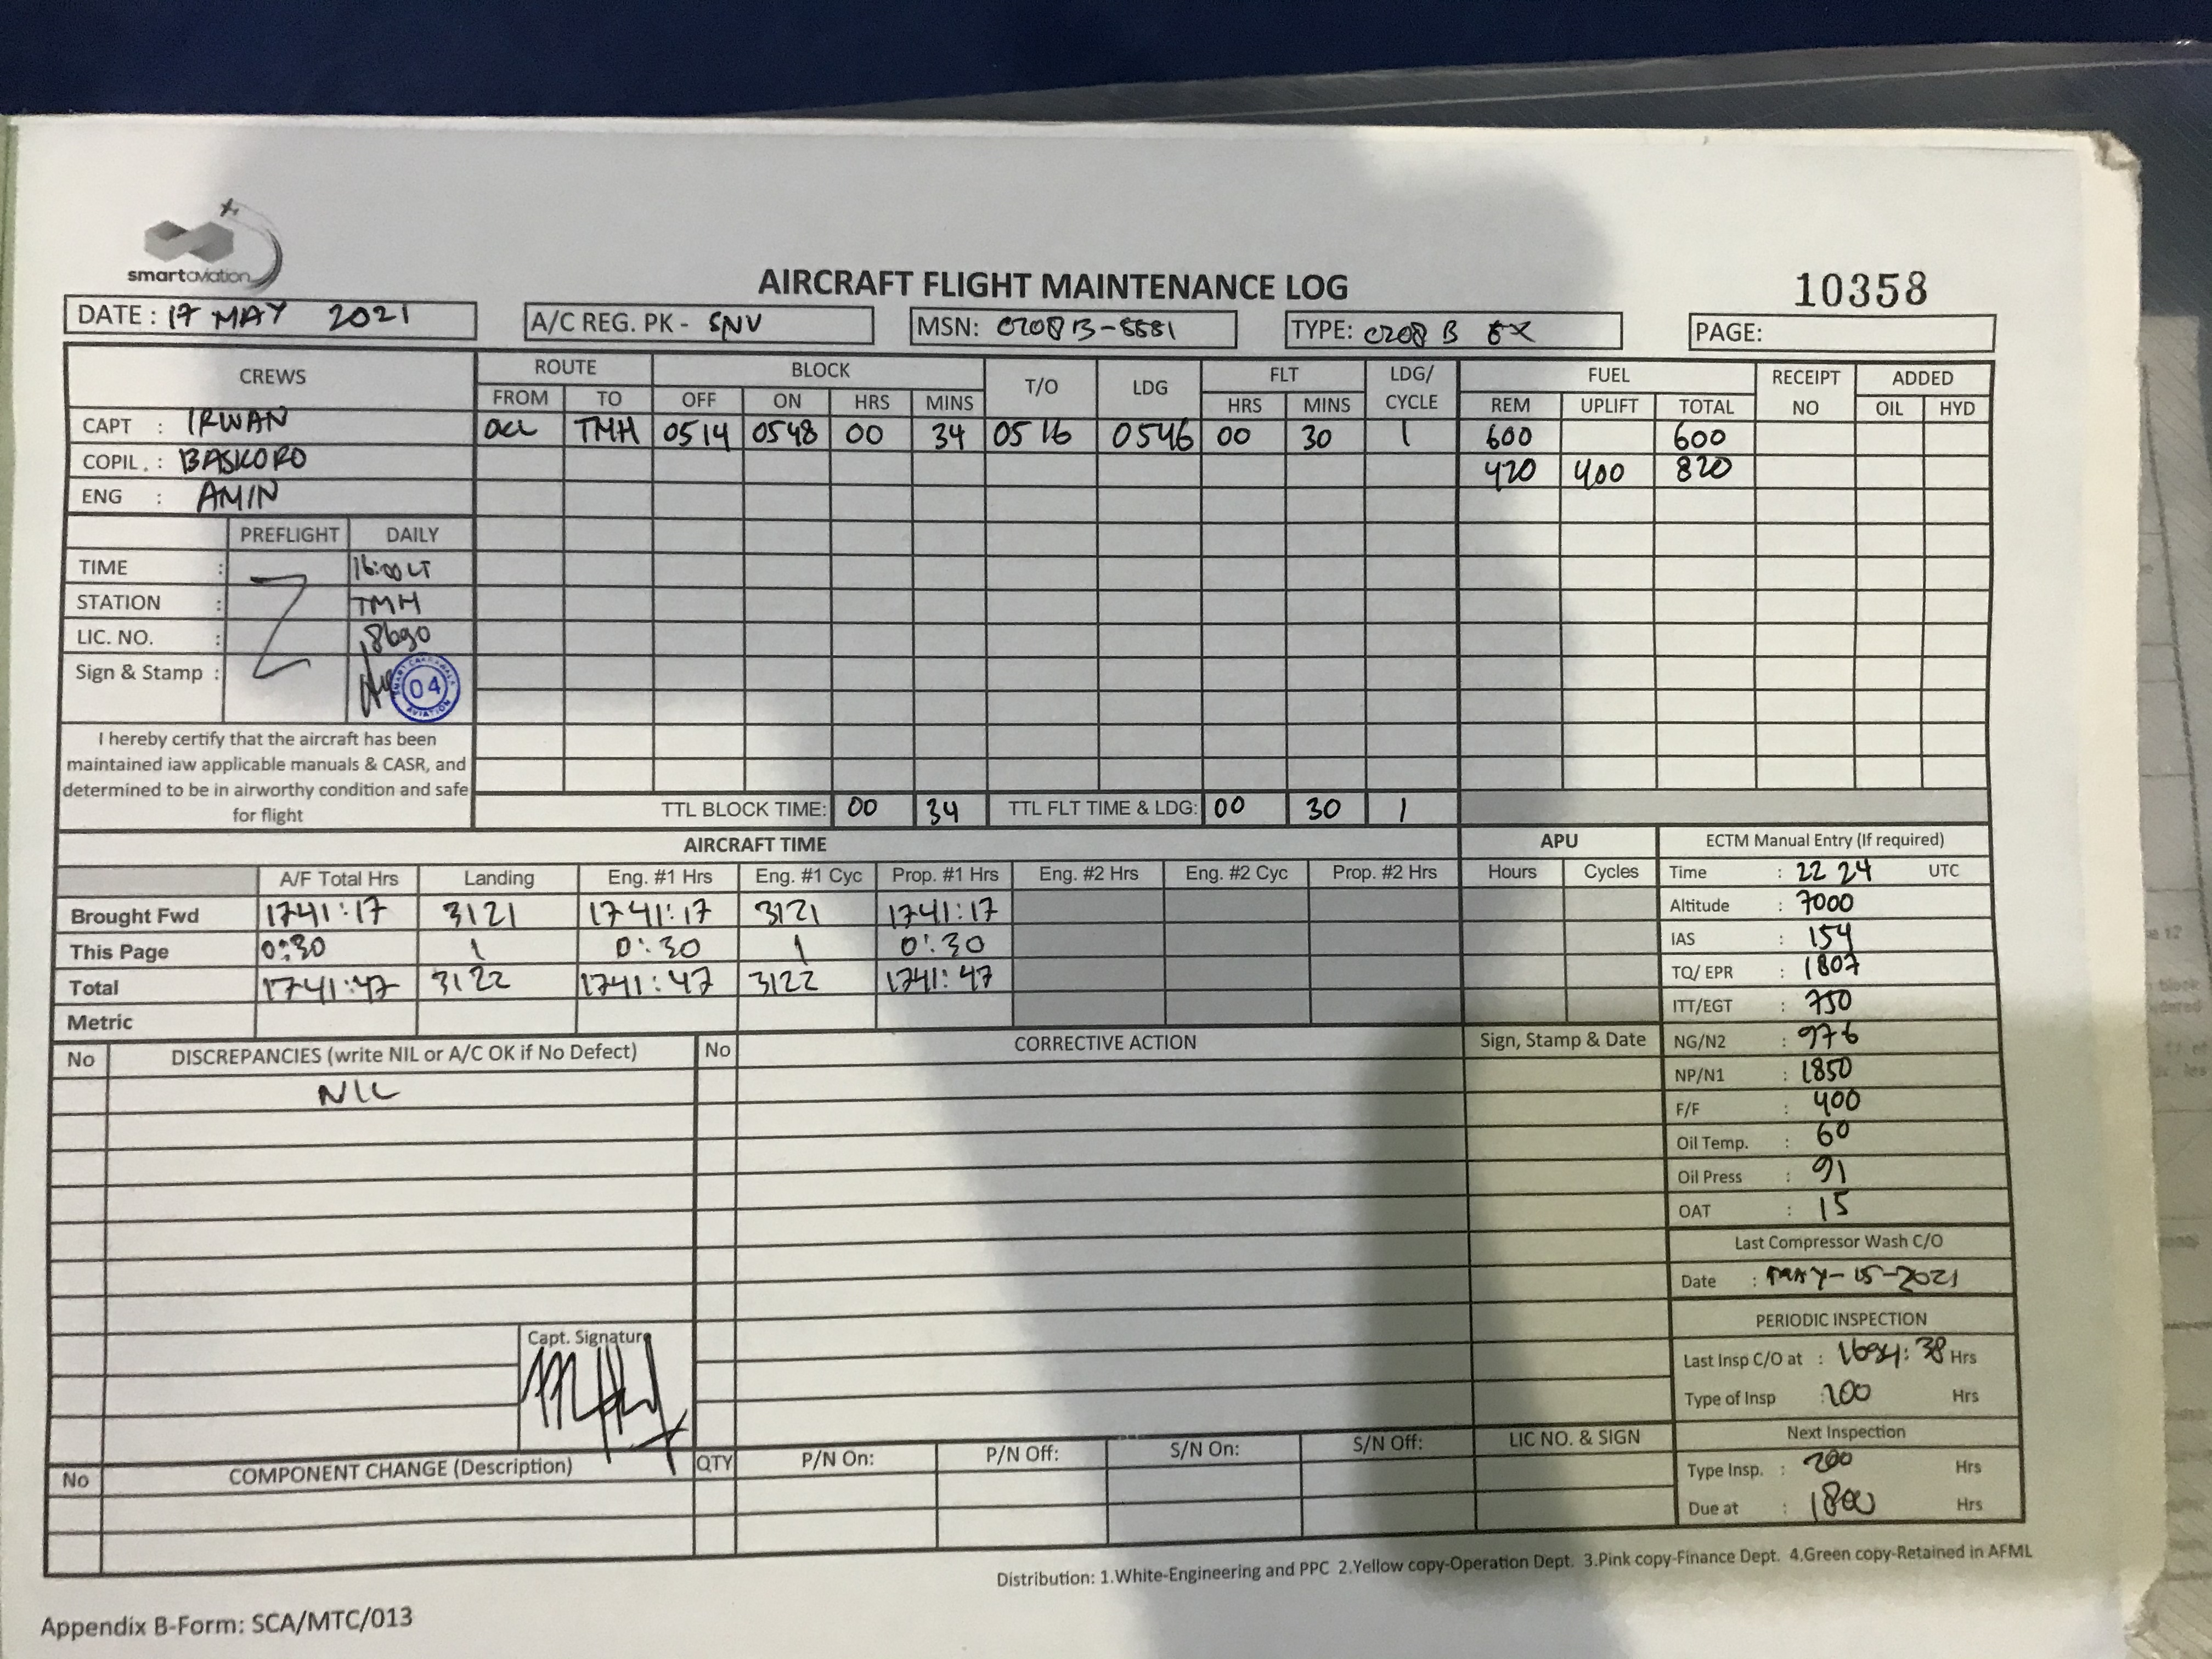 smartaviation
AIRCRAFT FLIGHT MAINTENANCE LOG
10358
DATE : 17 MAY 2021
A/C REG. PK - SNV
MSN: C208B-5581
TYPE: C208 B EX
PAGE:
CREWS
ROUTE BLOCK T/O LDG FLT LDG/ CYCLE FUEL RECEIPT NO ADDED
FROM TO OFF ON HRS MINS HRS MINS REM UPLIFT TOTAL OIL HYD
CAPT : IRWAN
TMH 0514 0548 00 34 0516 0546 00 30 1 600 600
COPIL. : BASKORO
420 400 820
ENG : AMIN
PREFLIGHT DAILY
TIME : 16:00 LT
STATION : TMH
LIC. NO. :
Sign & Stamp :
04
AVIATION
I hereby certify that the aircraft has been
maintained iaw applicable manuals & CASR, and
determined to be in airworthy condition and safe
for flight
TTL BLOCK TIME: 00 34 TTL FLT TIME & LDG: 00 30 1
AIRCRAFT TIME
APU
A/F Total Hrs Landing Eng. #1 Hrs Eng. #1 Cyc Prop. #1 Hrs Eng. #2 Hrs Eng. #2 Cyc Prop. #2 Hrs Hours Cycles
Brought Fwd 1741:17 3121 1741:17 3121 1741:17
This Page 0:30 1 0:30 1 0:30
Total 1741:47 3122 1741:47 3122 1741:47
Metric
ECTM Manual Entry (If required)
Time : 22 24 UTC
Altitude : 7000
IAS : 154
TQ/ EPR : 1807
ITT/EGT : 750
NG/N2 : 976
NP/N1 : 1850
F/F : 400
Oil Temp. : 60
Oil Press : 91
OAT : 15
Last Compressor Wash C/O
Date : MAY-15-2021
PERIODIC INSPECTION
Last Insp C/O at : 1694:38 Hrs
Type of Insp : 200 Hrs
Next Inspection
Type Insp. : 200 Hrs
Due at : 1800 Hrs
No DISCREPANCIES (write NIL or A/C OK if No Defect) No CORRECTIVE ACTION Sign, Stamp & Date
NIL
Capt. Signature
No COMPONENT CHANGE (Description) QTY P/N On: P/N Off: S/N On: S/N Off: LIC NO. & SIGN
Distribution: 1.White-Engineering and PPC 2.Yellow copy-Operation Dept. 3.Pink copy-Finance Dept. 4.Green copy-Retained in AFML
Appendix B-Form: SCA/MTC/013